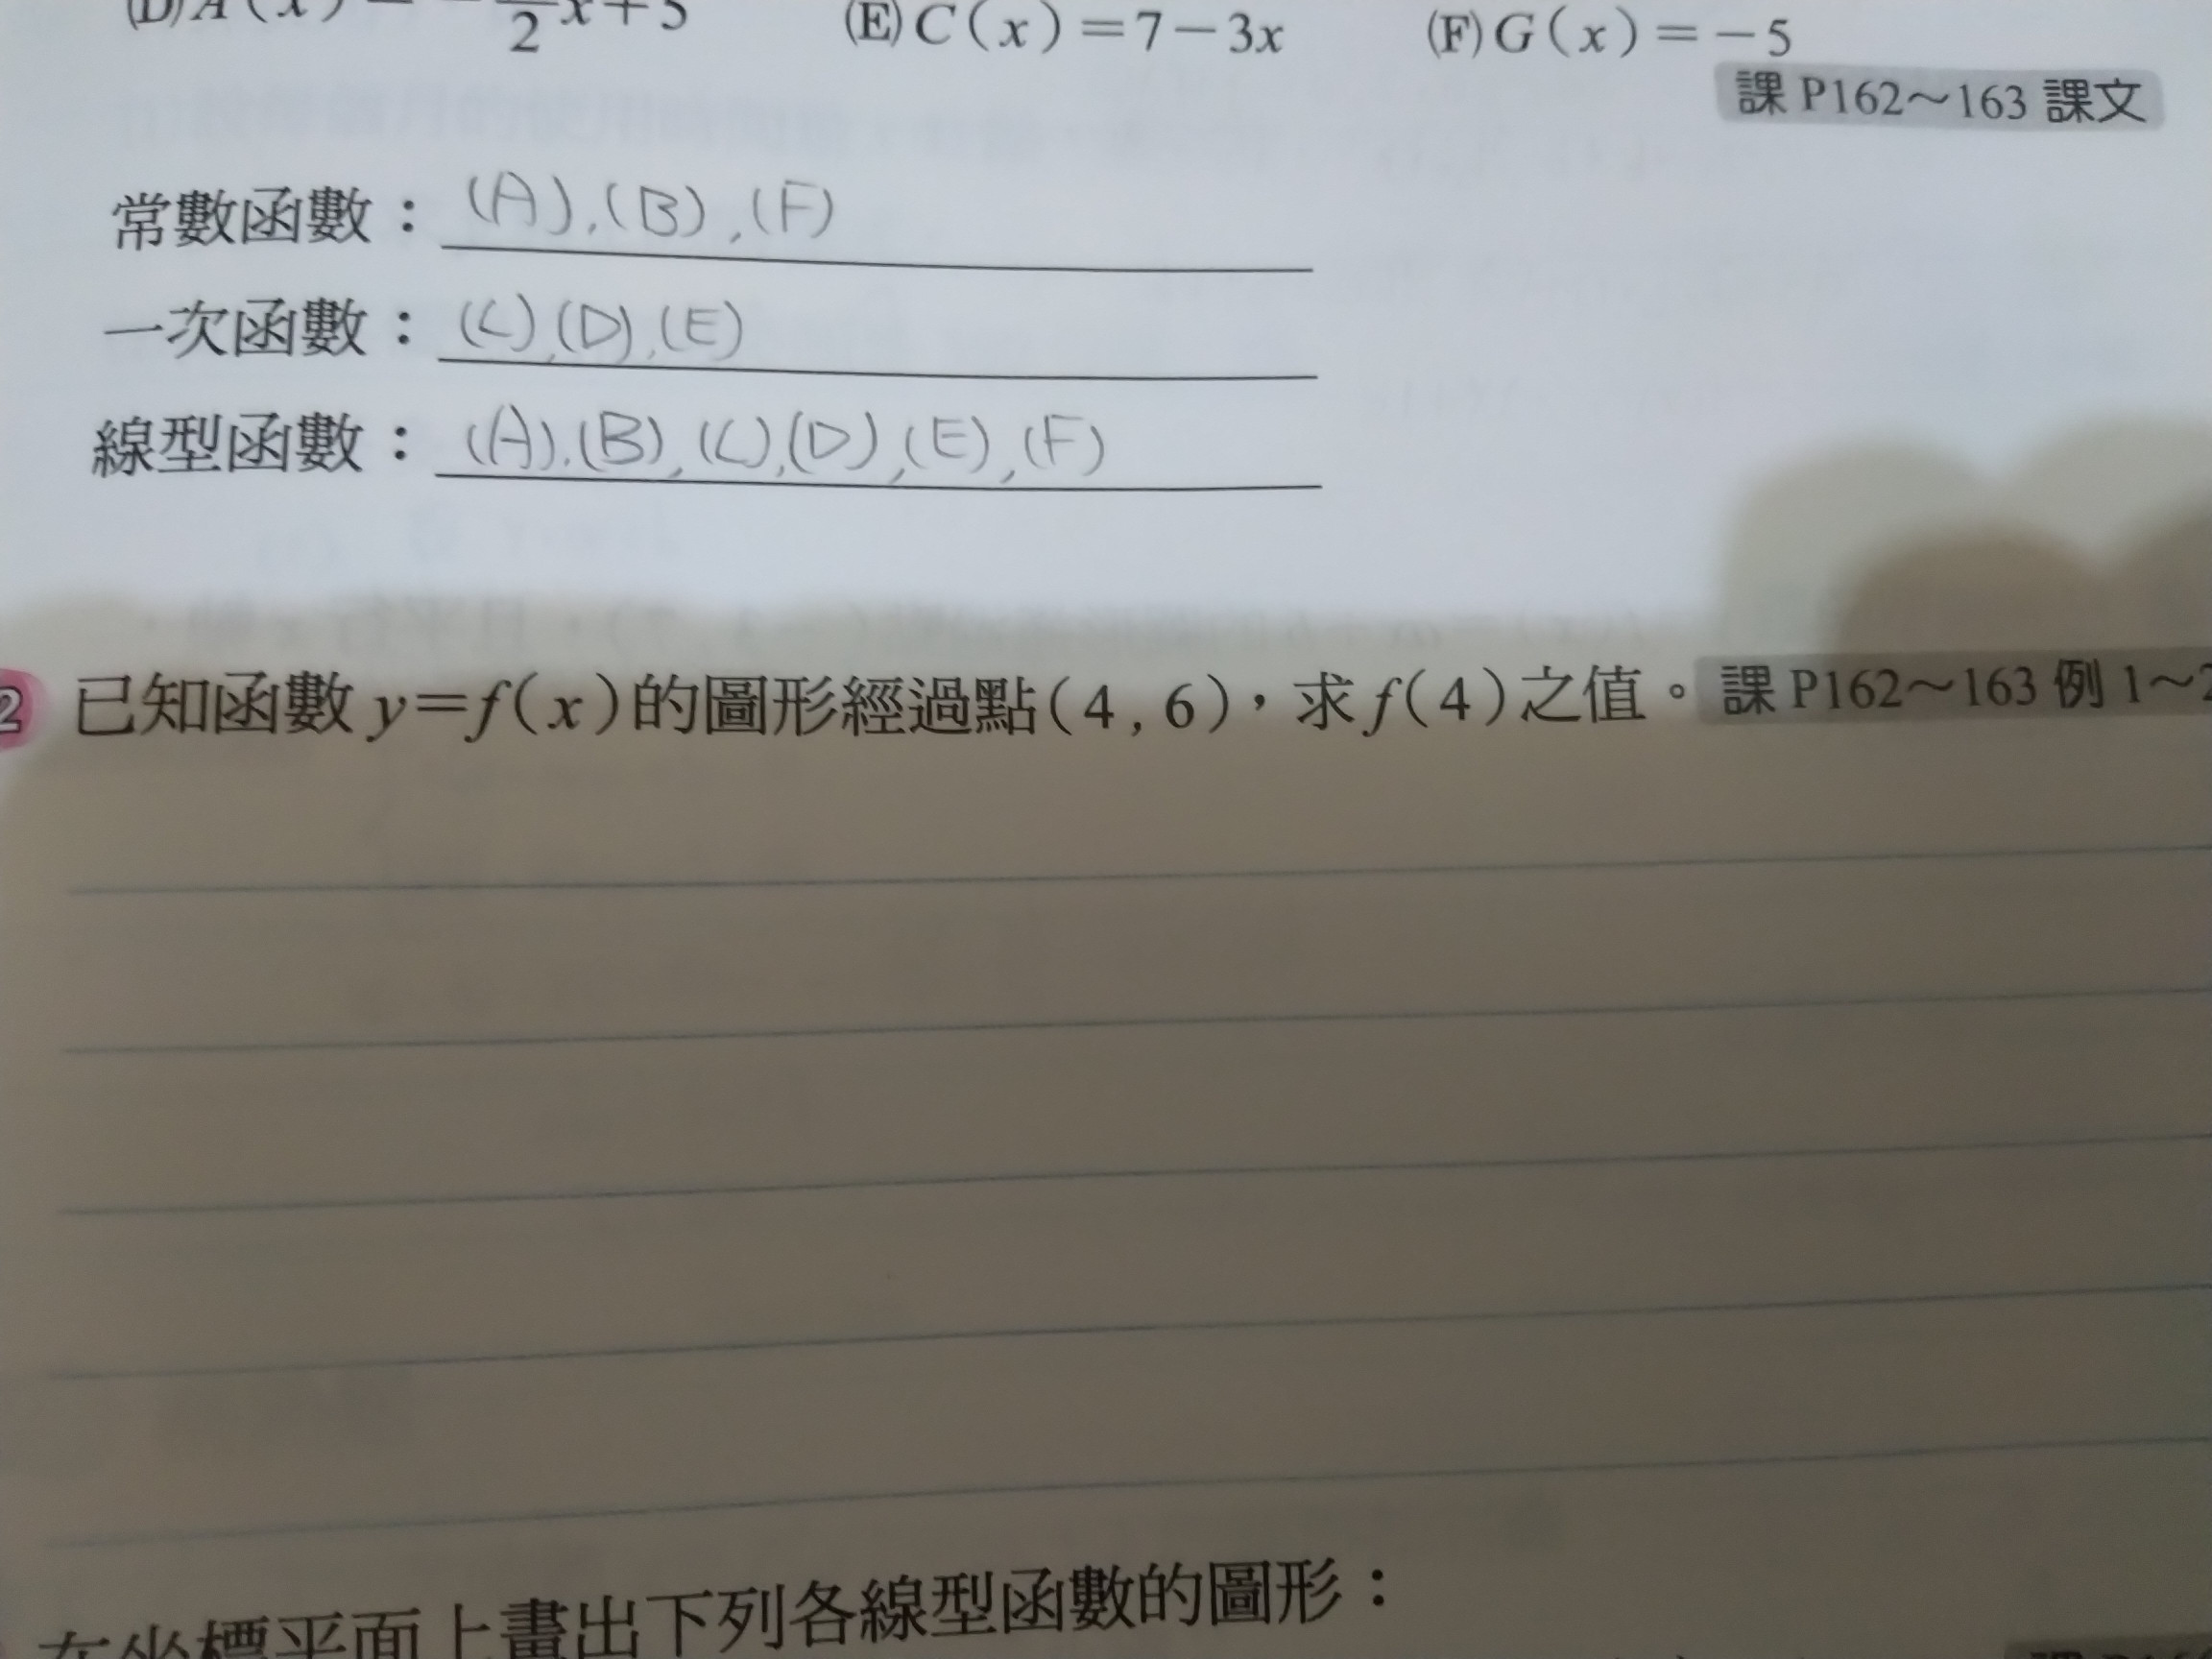 (D) A(x)=-—2x+5 (E) C(x)=7-3x (F) G(x)=-5
課 P162～163 課文
常數函數：(A),(B),(F)
一次函數：(C),(D),(E)
線型函數：(A),(B),(C),(D),(E),(F)
2 已知函數 y=f(x)的圖形經過點(4,6)，求f(4)之值。課 P162～163 例 1～2
在坐標平面上畫出下列各線型函數的圖形：